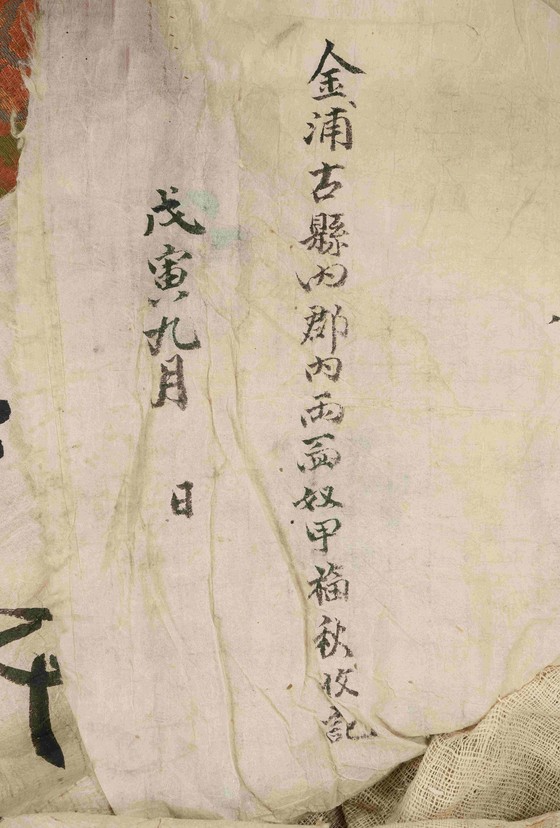 金浦古縣內郡內兩面奴甲福秋收記
戊寅九月 日